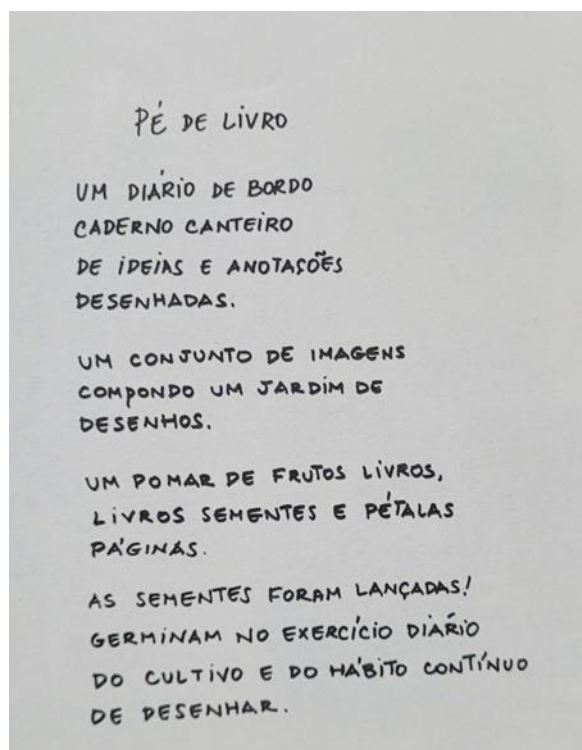 PÉ DE LIVRO
UM DIÁRIO DE BORDO
CADERNO CANTEIRO
DE IDEIAS E ANOTAÇÕES
DESENHADAS.
UM CONJUNTO DE IMAGENS
COMPONDO UM JARDIM DE
DESENHOS.
UM POMAR DE FRUTOS LIVROS,
LIVROS SEMENTES E PÉTALAS
PÁGINAS.
AS SEMENTES FORAM LANÇADAS!
GERMINAM NO EXERCÍCIO DIÁRIO
DO CULTIVO E DO HÁBITO CONTÍNUO
DE DESENHAR.